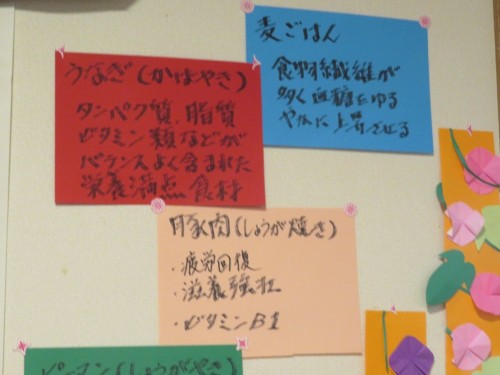 麦ごはん
食物繊維が
多く血糖をゆる
やかに上昇させる
うなぎ(かばやき)
タンパク質、脂質
ビタミン類などが
バランスよく含まれた
栄養満点食材
豚肉(しょうが焼き)
・疲労回復
・滋養強壮
・ビタミンB1
ピーマン(しょうがやき)